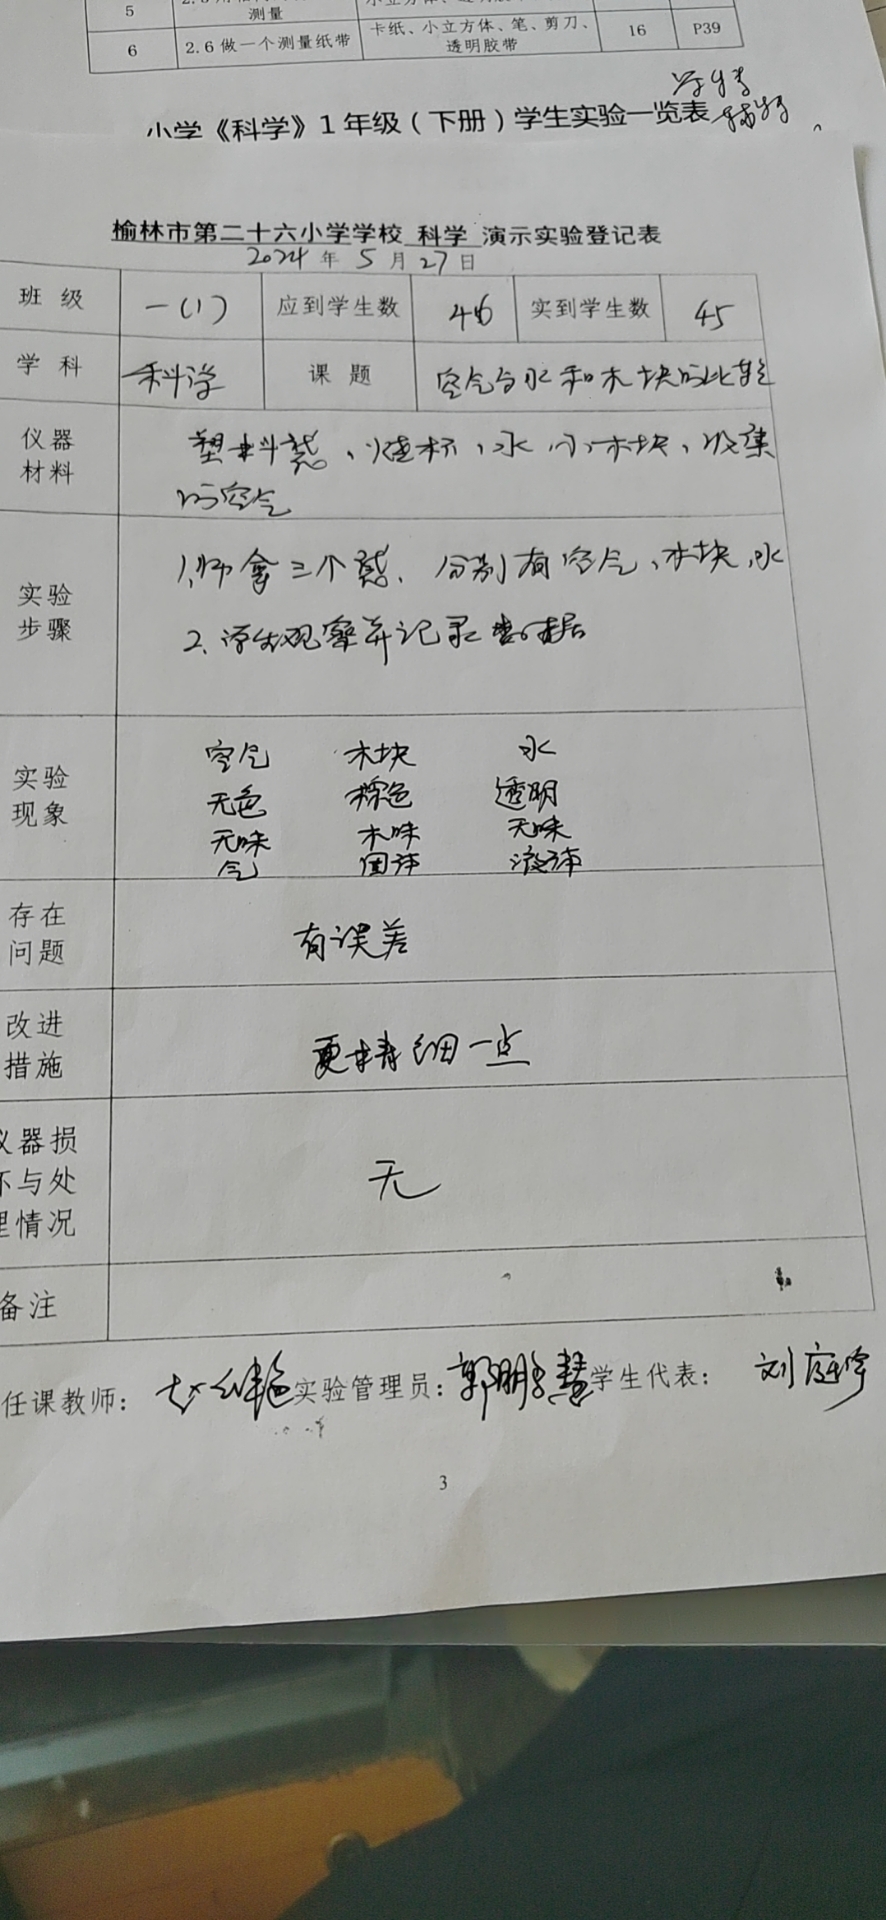 5
测量
6 2.6做一个测量纸带 卡纸、小立方体、笔、剪刀、透明胶带 16 P39
小学《科学》1年级（下册）学生实验一览表
榆林市第二十六小学学校 科学 演示实验登记表
2024年5月27日
班级 一(1) 应到学生数 46 实到学生数 45
学科 科学 课题 空气与水和木块的比较
仪器材料 塑料袋、烧杯、水、小木块、收集
的空气
实验步骤 1.师拿三个袋、分别有空气、木块、水
2、学生观察并记录数据
实验现象 空气 木块 水
无色 棕色 透明
无味 木味 无味
气 固体 液体
存在问题 有误差
改进措施 更精细一点
仪器损
坏与处
理情况 无
备注
任课教师： 实验管理员：郭明慧 学生代表：刘庭宇
3